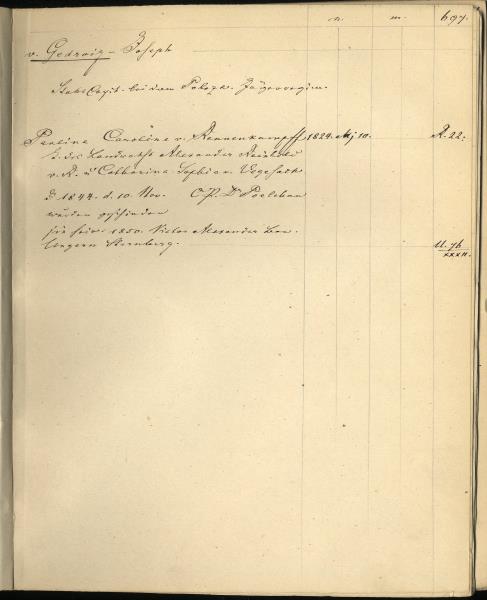 n. m. 697.
v. Gedroiz - Joseph
Stabs Capit. bei dem Polozk. Jägerregim.
Paulina Caroline v. Rennenkampff 1824. Mj 10. R. 22.
T. des Landraths Alexander Reinhold
v. R. u Catharina Sophie v. Vegesack
d. 1844. d. 10. Nov. C. P. Dr Poelchau
wurden geschieden
sie heir. 1850. Victor Alexander Bar.
Ungern Sternberg. U. 76
XXXII.